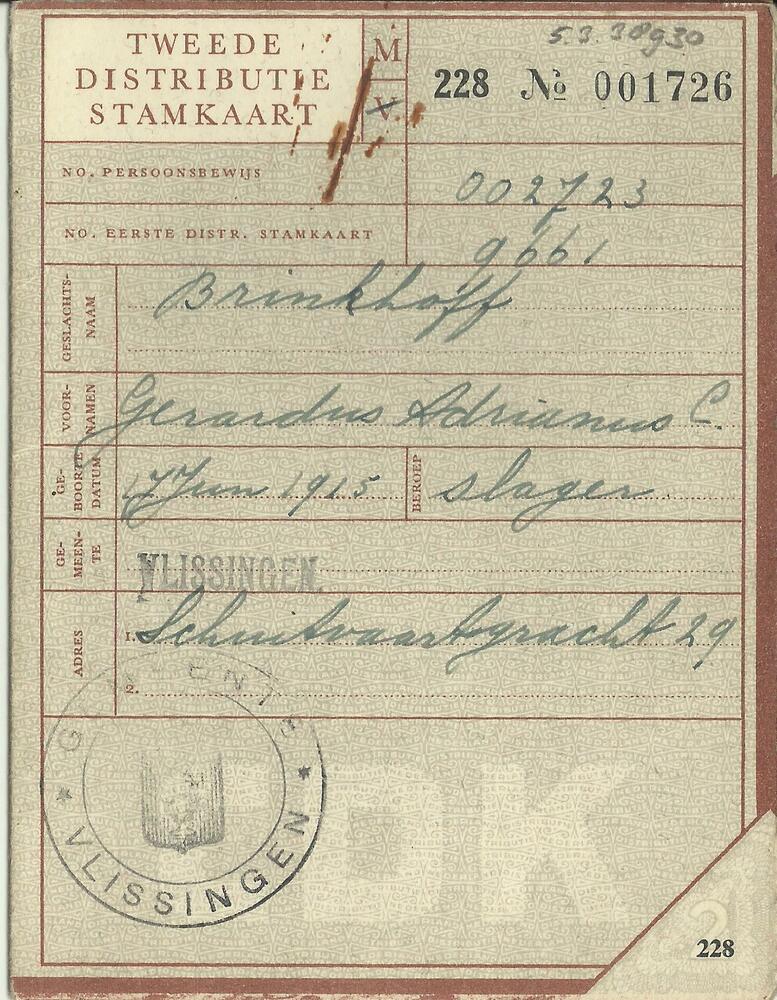 5.3.38930
TWEEDE
DISTRIBUTIE
STAMKAART
M
V
228 № 001726
NO. PERSOONSBEWIJS 002723
NO. EERSTE DISTR. STAMKAART 9661
GESLACHTS-
NAAM
Brinkhoff
VOOR-
NAMEN
Gerardus Adrianus C.
GE-
BOORTE
DATUM
17 Jun 1915
BEROEP
slager
GE-
MEEN-
TE
VLISSINGEN.
ADRES
1. Schuitvaartgracht 29
2.
GEMEENTE
★ VLISSINGEN ★
DK
2
228